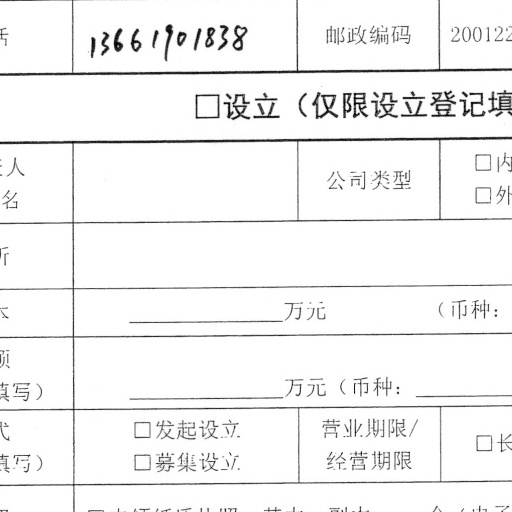 话 13661901838 邮政编码 200122
□设立（仅限设立登记填
人
名 公司类型 □内
□外
所
本 ____________万元 （币种：
额
填写） ____________万元（币种：__________
式
填写） □发起设立
□募集设立 营业期限/
经营期限 □长